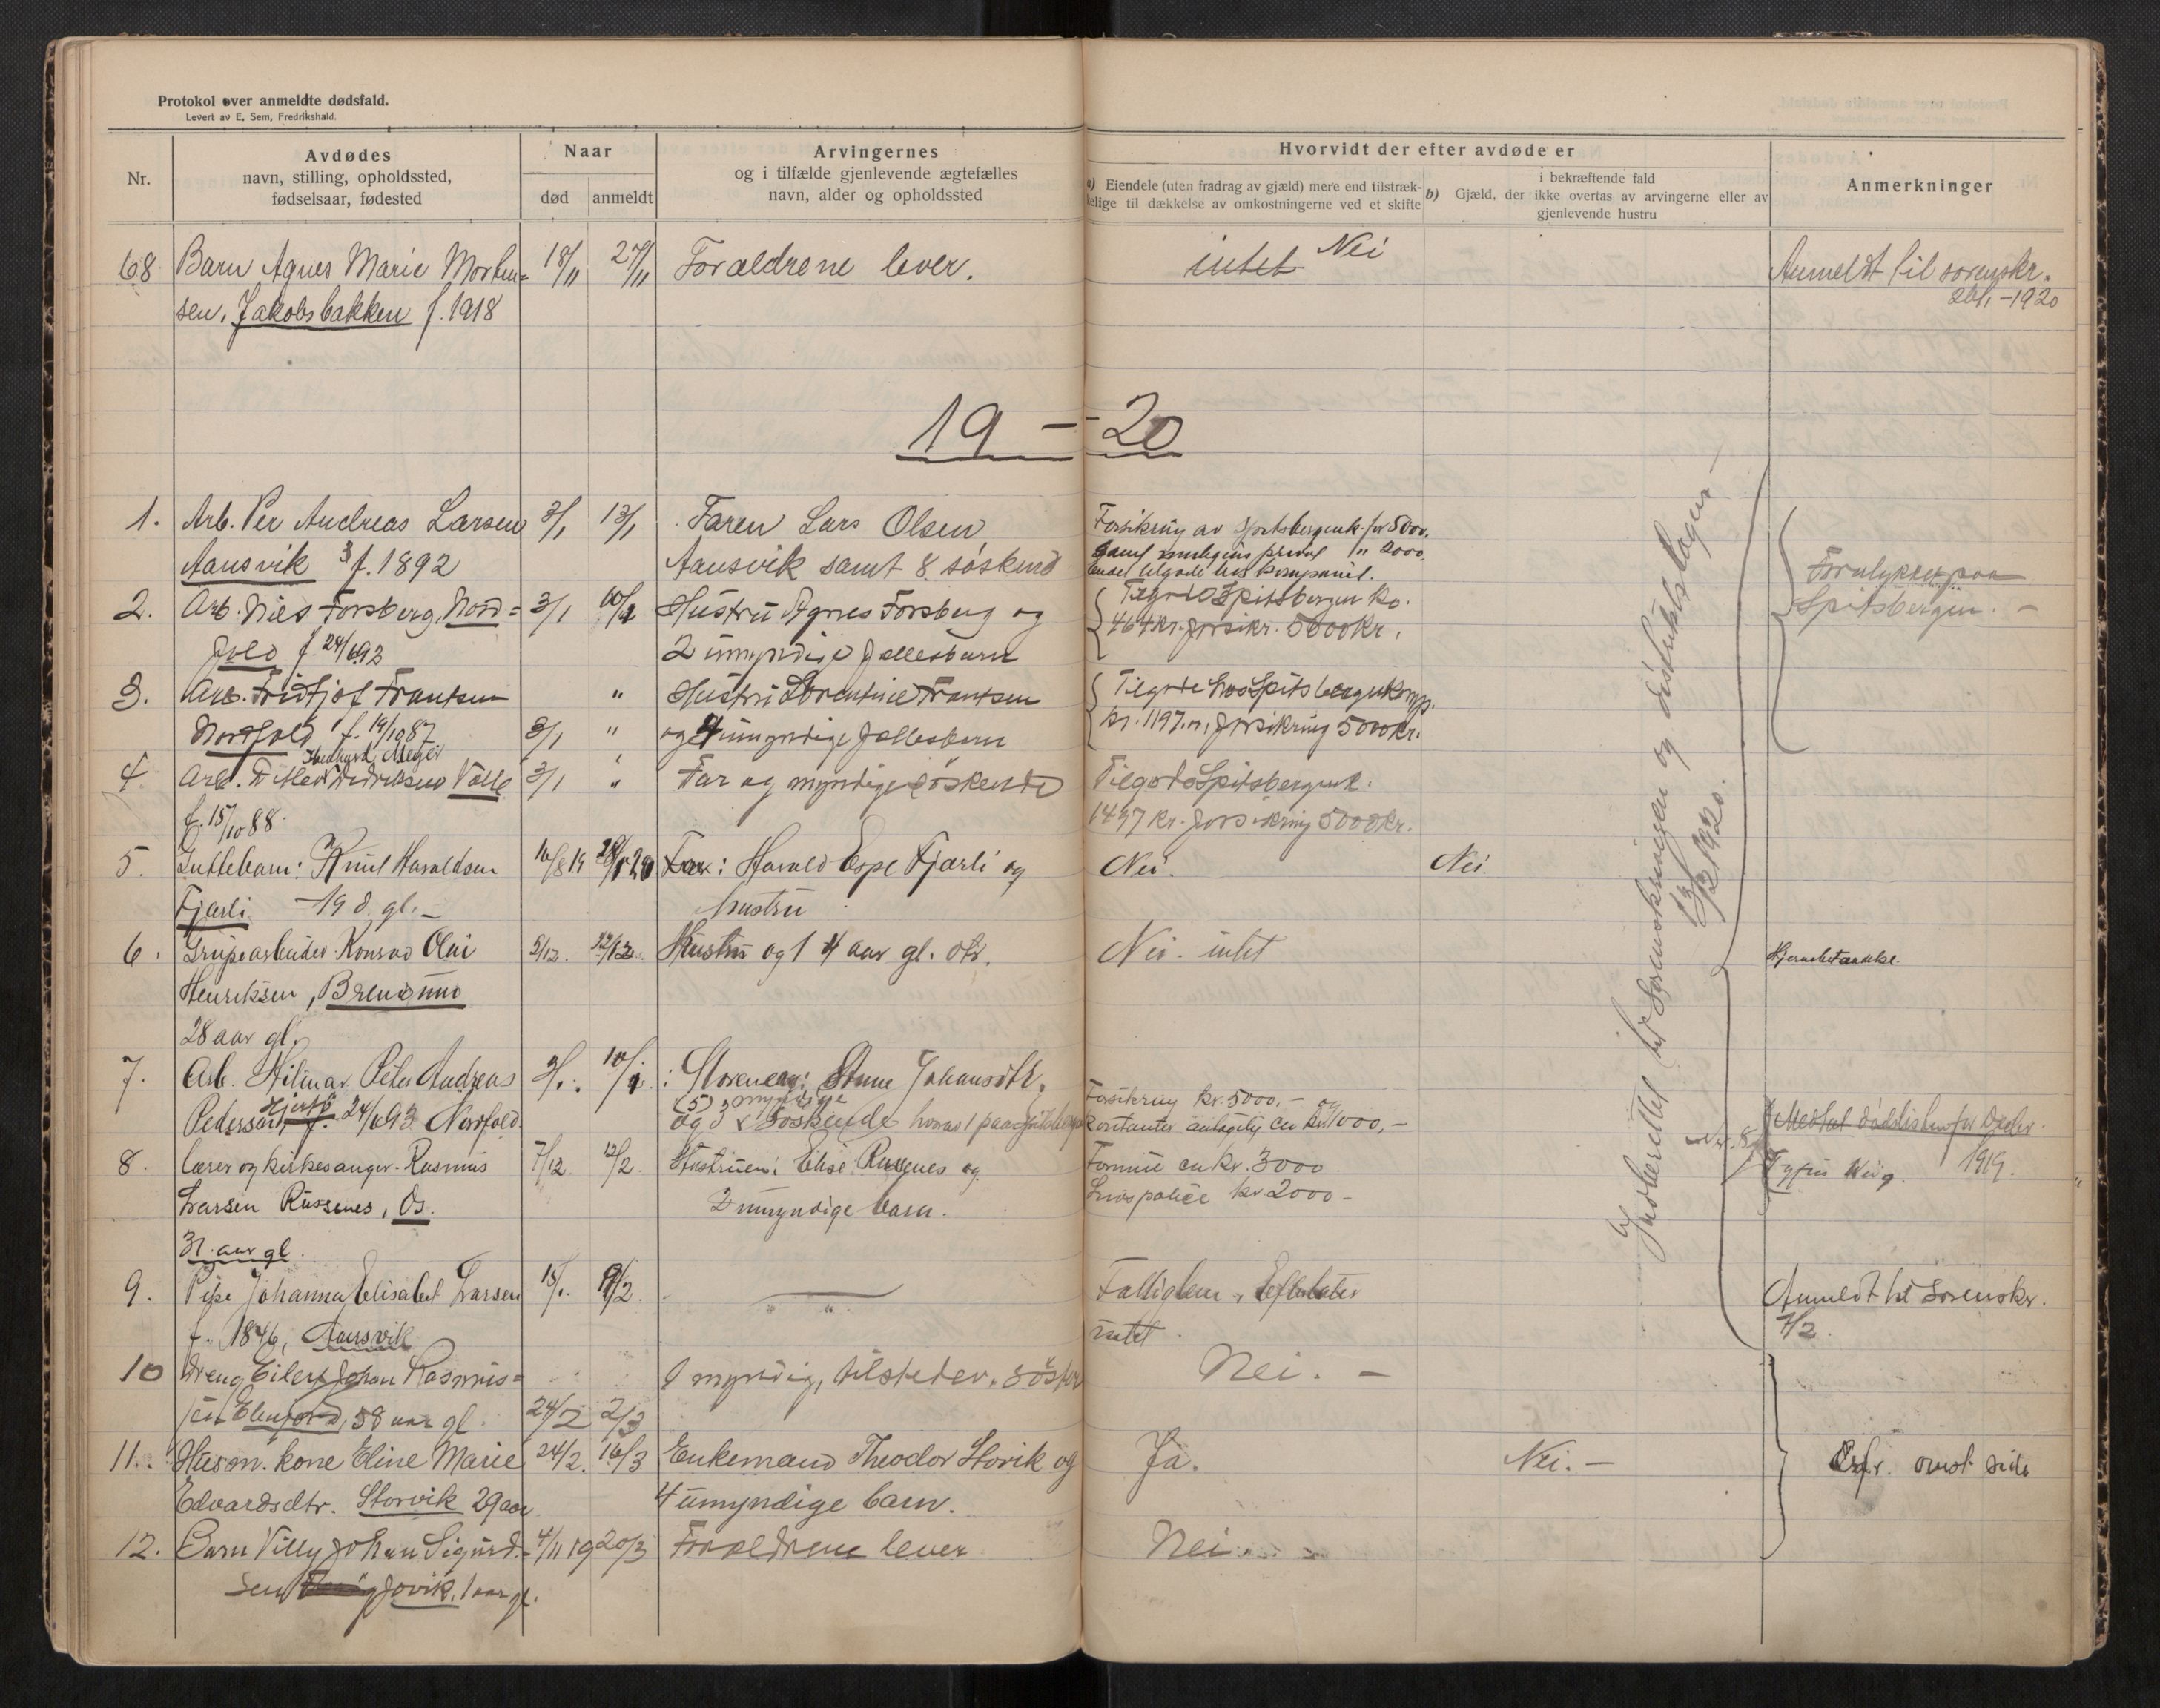 Protokol over anmeldte dødsfald.
Levert av E. Sem, Fredrikshald.
Nr.
Avdødes
navn, stilling, opholdssted,
fødselsaar, fødested
Naar
død
anmeldt
Arvingernes
og i tilfælde gjenlevende ægtefælles
navn, alder og opholdssted
Hvorvidt der efter avdøde er
a) Eiendele (uten fradrag av gjæld) mere end tilstræk-
kelige til dækkelse av omkostningerne ved et skifte
i bekræftende fald
b) Gjæld, der ikke overtas av arvingerne eller av
gjenlevende hustru
Anmerkninger
68 Barn Agnes Marie Morten= 18/11 27/11 Forældrene lever. intet Nei Anmeldt til sorenskr.
sen, Jakobsbakken f. 1918 -1920
19 - 20
1. Arb. Per Andreas Larsen 3/1 13/1 Faren Lars Olsen, Forsikring av Spitsbergenk. for 5000.
Aansvik f. 1892 Aansvik samt 8 søskend samt muligens privat " 2000.
andet tilgode hos kompaniet.
Forulykket paa
Spitsbergen. -
2. Arb. Nils Forsberg, Nord= 3/1 Hustru Agnes Forsberg og Tilgode Spitsbergen Ko.
fold f. 24/6 93 2 umyndige fællesbarn 464 kr. forsikr. 5000 kr.
3. Arb. Fridtjof Frantsen " Hustru Lorentine Frantsen Tilgode hos Spitsbergenkomp.
Nordfold f. 19/10 87 3/1 " og 4 umyndige fællesbarn kr. 1197.  forsikring 5000 kr.
4. Arb. Meyer Didriksen Valle 3/1 " Far og myndige søskende Tilgode Spitsbergenk.
f. 15/10 88. 1497 kr. forsikring 5000 kr.
5. Guttebarn: Knut Haraldsen 16/8 19 20 Far: Harald Espe Fjærli og Nei. Nei.
Fjærli - 19 d. gl. - hustru
6. Grubearbeider Konrad Olai 5/12. Hustru og 1 4 aar gl. dtr. Nei. intet Hjernebetændelse.
Henriksen, Brendmo
28 aar gl.
7. Arb. Hilmar Peter Andreas 3/1. Moren Johansdtr.
Pedersen, f. 24/6 93 Nordfold. (5) myndige
og 3 søskende hvorav 1 paa Spitsbergen
Forsikring kr. 5000,- og
kontanter antagelig ca kr. 1000,-
8. Lærer og kirkesanger Rasmus 7/12. 12/2. Hustruen: Elise Russenes og Formue ca kr. 3000
Larsen Russenes, Os. 2 umyndige barn. Livspolice kr 2000 -
31 aar gl.
Nr. 8
Medtat dødslisten for Decbr.
1919.
9. Pike Johanna Elisabet Larsen 9/2. Fattiglem, Efterlater Anmeldt til Sorenskr.
f. 1846, Aansvik intet.
10 Dreng Eilert Johan Rasmus= 1 myndig, tilstedev. søster Nei. -
sen Elvefjord, 58 aar gl. 24/2 2/3
11. Husm. kone Eline Marie 24/2. 16/3 Enkemand Theodor Storvik og Ja. Nei. - øverst side
Edvardsdtr. Storvik 29 aar 4 umyndige barn.
12. Barn Villy Johan Sigurd- 4/11 19 20/3 Forældrene lever Nei.
sen Jovik, 1 aar gl.
Indberettet til Sorenskriveren og distriktslægen
13/2 1920.